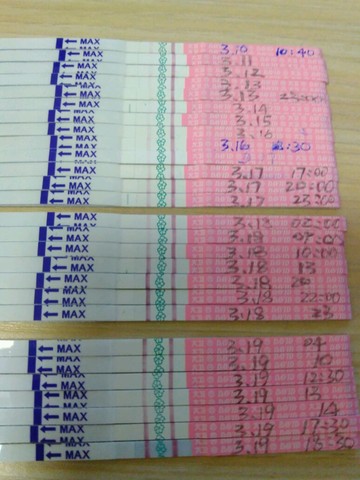 MAX 3.10 10:40
MAX 3.11
MAX 3.12
MAX 3.13
MAX 3.13 23:00
MAX 3.14
MAX 3.15
MAX 3.16
MAX 3.16
MAX
MAX 3.17 17:00
MAX 3.17 20:00
MAX 3.17 23:00
MAX 3.18 02:00
MAX 3.18
MAX 3.18 10:00
MAX 3.18 13
MAX 3.18 20
MAX 3.18 22:00
MAX 3.18 23
MAX 3.19 04
MAX 3.19 10
MAX 3.19 12:30
MAX 3.19 13
MAX 3.19 14
MAX 3.19 17:30
MAX 3.19 18:30